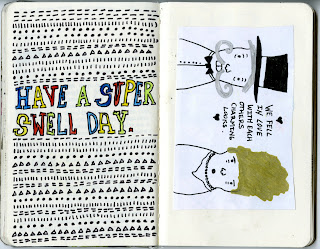 HAVE A SUPER
SWELL DAY.
WE FELL
IN LOVE
WITH EACH
OTHERS
CHARMING
LOOKS.